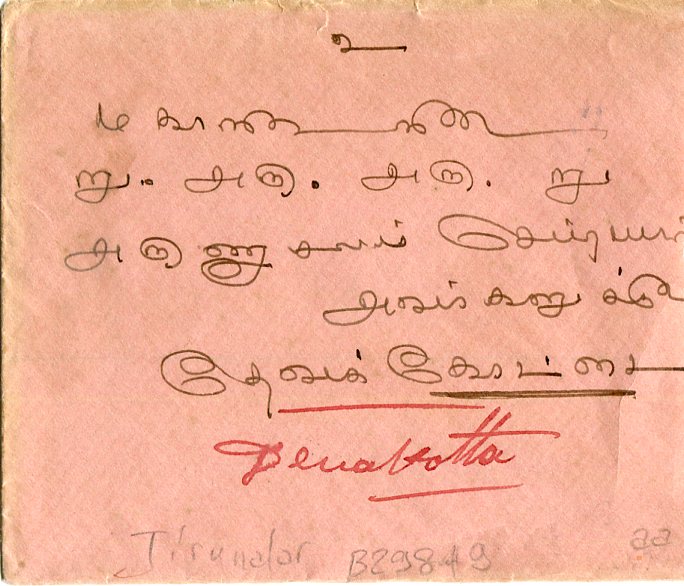 உ
று. அரு. அரு. று
அருணாசலம் செட்டியார்
அவர்களுக்கு
தேவகோட்டை
Devakotta
Tirunalar B29849 aa